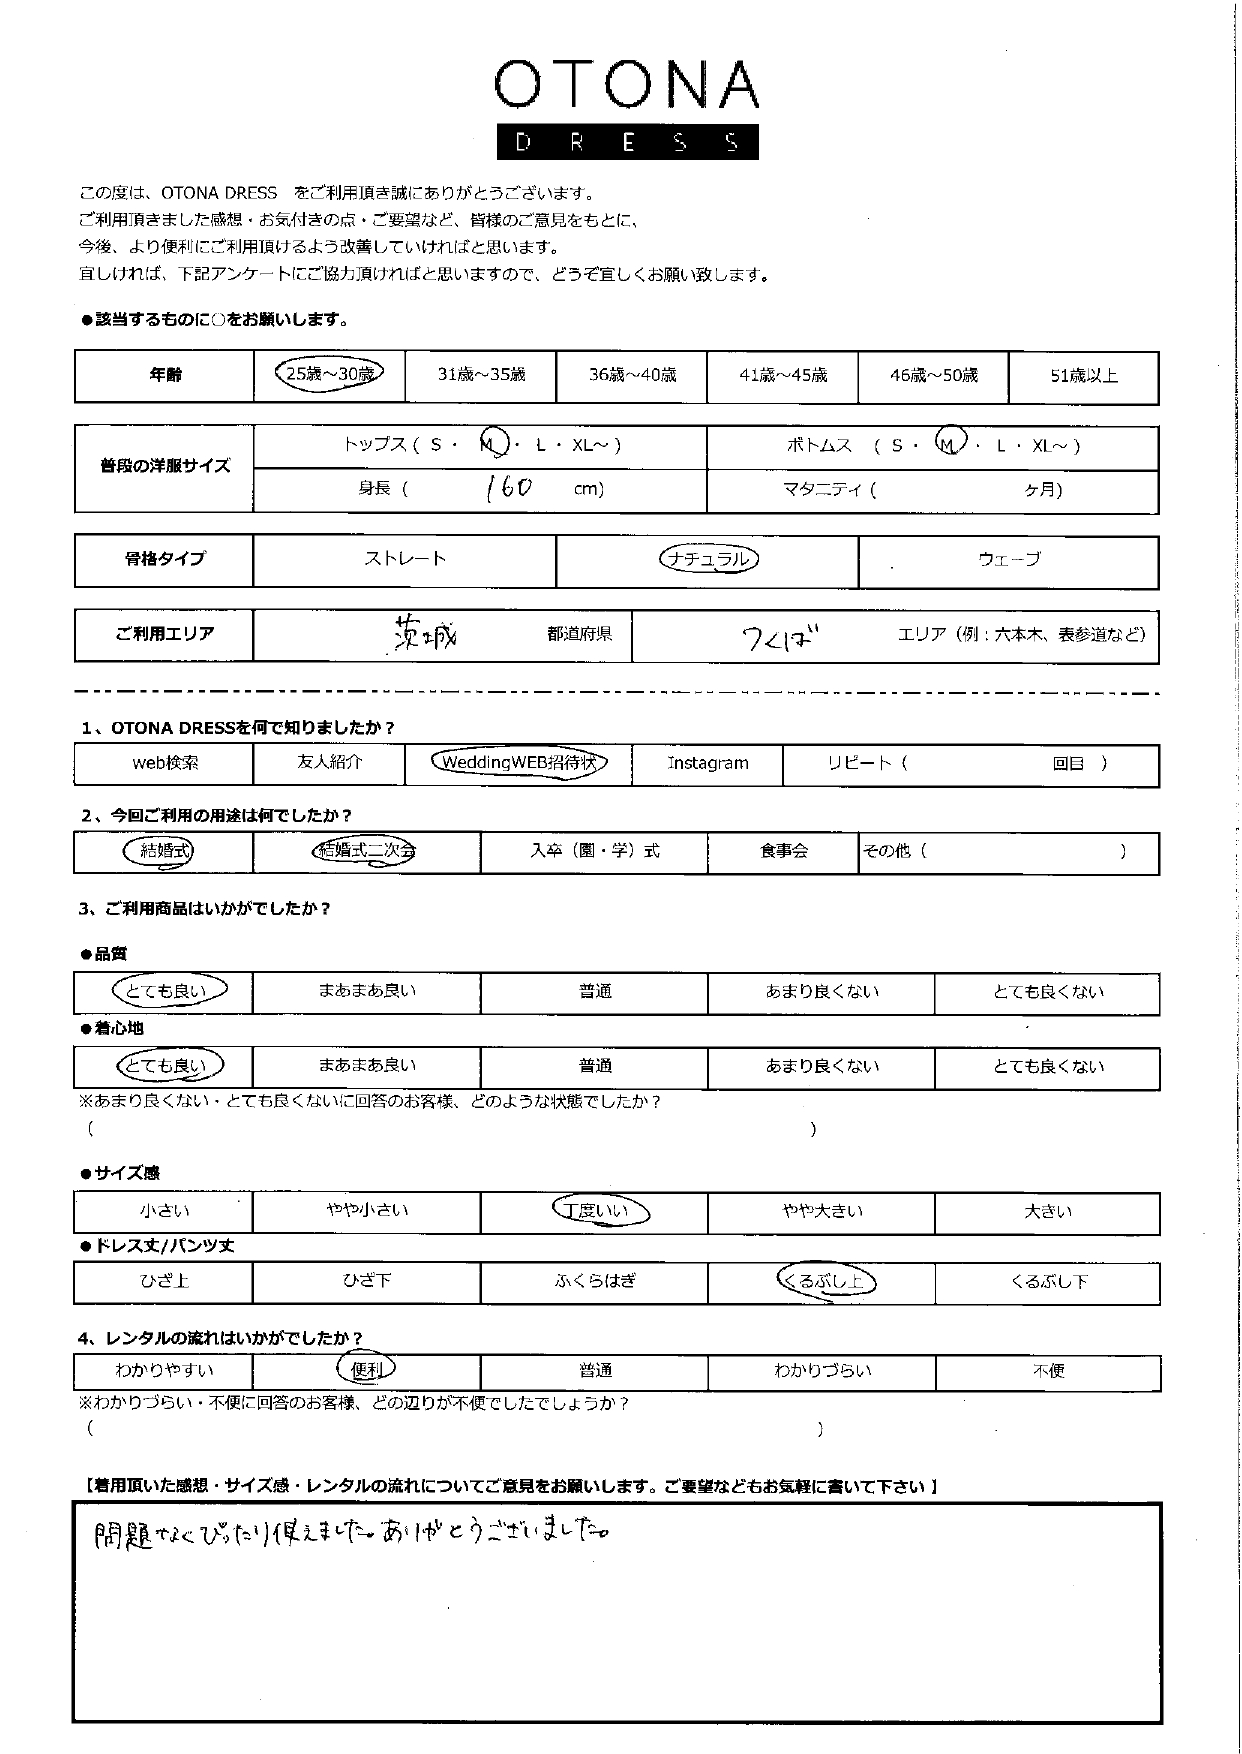 OTONA
DRESS
この度は、OTONA DRESS をご利用頂き誠にありがとうございます。
ご利用頂きました感想・お気付きの点・ご要望など、皆様のご意見をもとに、
今後、より便利にご利用頂けるよう改善していければと思います。
宜しければ、下記アンケートにご協力頂ければと思いますので、どうぞ宜しくお願い致します。
●該当するものに○をお願いします。
年齢 25歳～30歳 31歳～35歳 36歳～40歳 41歳～45歳 46歳～50歳 51歳以上
普段の洋服サイズ トップス ( S ・ M ・ L ・ XL～ ) ボトムス ( S ・ M ・ L ・ XL～ )
身長 ( 160 cm) マタニティ ( ヶ月)
骨格タイプ ストレート ナチュラル ウェーブ
ご利用エリア 茨城 都道府県 つくば エリア（例：六本木、表参道など）
1、OTONA DRESSを何で知りましたか？
web検索 友人紹介 WeddingWEB招待状 Instagram リピート ( 回目 )
2、今回ご利用の用途は何でしたか？
結婚式 結婚式二次会 入卒（園・学）式 食事会 その他 ( )
3、ご利用商品はいかがでしたか？
●品質
とても良い まあまあ良い 普通 あまり良くない とても良くない
●着心地
とても良い まあまあ良い 普通 あまり良くない とても良くない
※あまり良くない・とても良くないに回答のお客様、どのような状態でしたか？
( )
●サイズ感
小さい やや小さい 丁度いい やや大きい 大きい
●ドレス丈/パンツ丈
ひざ上 ひざ下 ふくらはぎ くるぶし上 くるぶし下
4、レンタルの流れはいかがでしたか？
わかりやすい 便利 普通 わかりづらい 不便
※わかりづらい・不便に回答のお客様、どの辺りが不便でしたでしょうか？
( )
【着用頂いた感想・サイズ感・レンタルの流れについてご意見をお願いします。ご要望などもお気軽に書いて下さい 】
問題なくぴったり使えました。ありがとうございました。